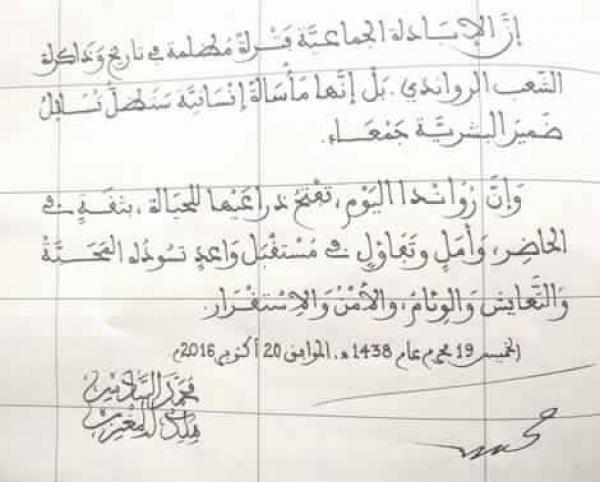 إنّ الإبادلة الجماعيّة فترلة مُظلمة في تاريخ وذاكرلة
الشعب الرواندي. بل إنّها مأسالة إنسانيّة ستظلّ تُسائل
ضمير البشريّة جمعاء.
وإنّ رُوانْدا اليَوْم، تفتحُ ذراعيْها للحيالة، بثقةٍ في
الحاضِرِ، وأملٍ وتفاؤلٍ في مُسْتقْبَلٍ وَاعدٍ تسُودُه المَحَبَّةُ
وَالتَّعايش والوِئامُ، والأمْنُ وَالاِسْتقْرار.
الخميس 19 محرم عام 1438 هـ، الموافق 20 أكتوبر 2016م
محمد السادس
ملك المغرب